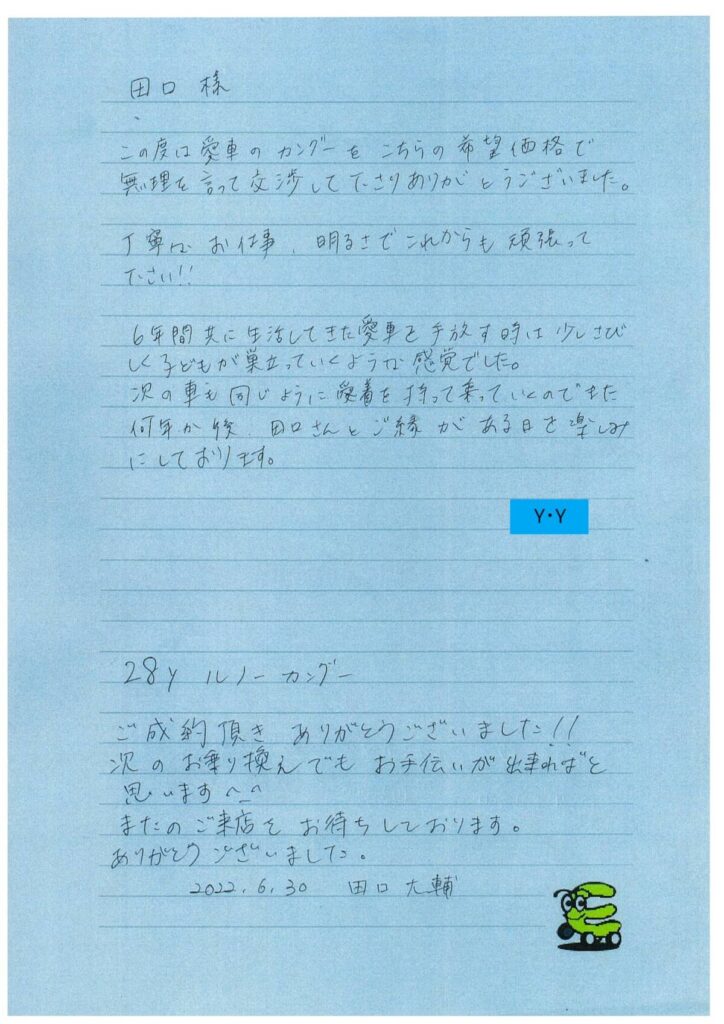 田口様
この度は愛車のカングーをこちらの希望価格で
無理を言って交渉して下さりありがとうございました。
丁寧なお仕事、明るさでこれからも頑張って
下さい!!
6年間共に生活してきた愛車を手放す時は少しさび
しく子どもが巣立っていくような感覚でした。
次の車も同じように愛着を持って乗っていくのでまた
何年か後、田口さんとご縁がある日を楽しみ
にしております。
Y・Y
28y ルノー カングー
ご成約頂き ありがとうございました!!
次のお乗り換えでもお手伝いが出来ればと
思います^_^
またのご来店をお待ちしております。
ありがとうございました。
2022.6.30 田口大輔